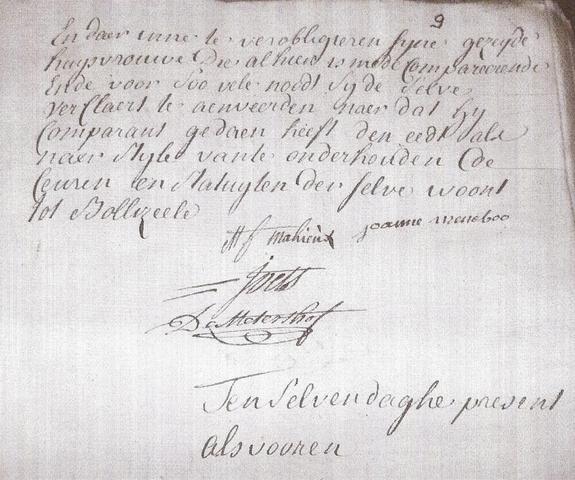 9
En daer inne te verobligieren syne gezeyde
huysvrouwe Die alhier is mede Comparerende
Ende voor soo vele noodt sy de selve
verClaert te aenveerden naer dat hy
Comparant gedaen heeft den eedt als
naer style vante onderhouden de
Ceuren en Statuyten der selve woont
tot Bollezeele
mahieux joanne meneboo
De Metershof
Ten selven daghe present
als vooren